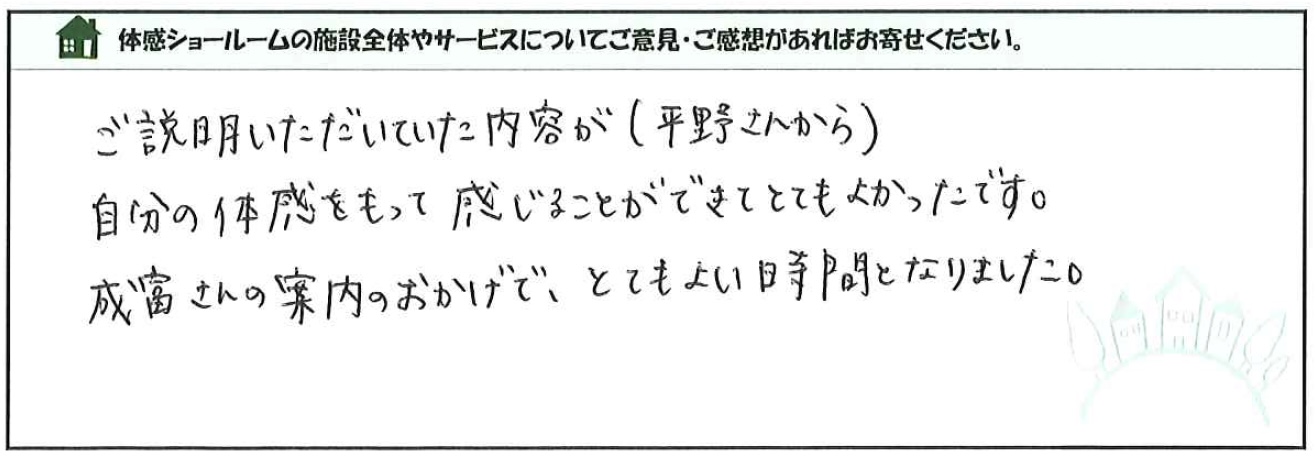 体感ショールームの施設全体やサービスについてご意見・ご感想があればお寄せください。
ご説明いただいていた内容が(平野さんから)
自分の体感をもって感じることができてとてもよかったです。
成富さんの案内のおかげで、とてもよい時間となりました。